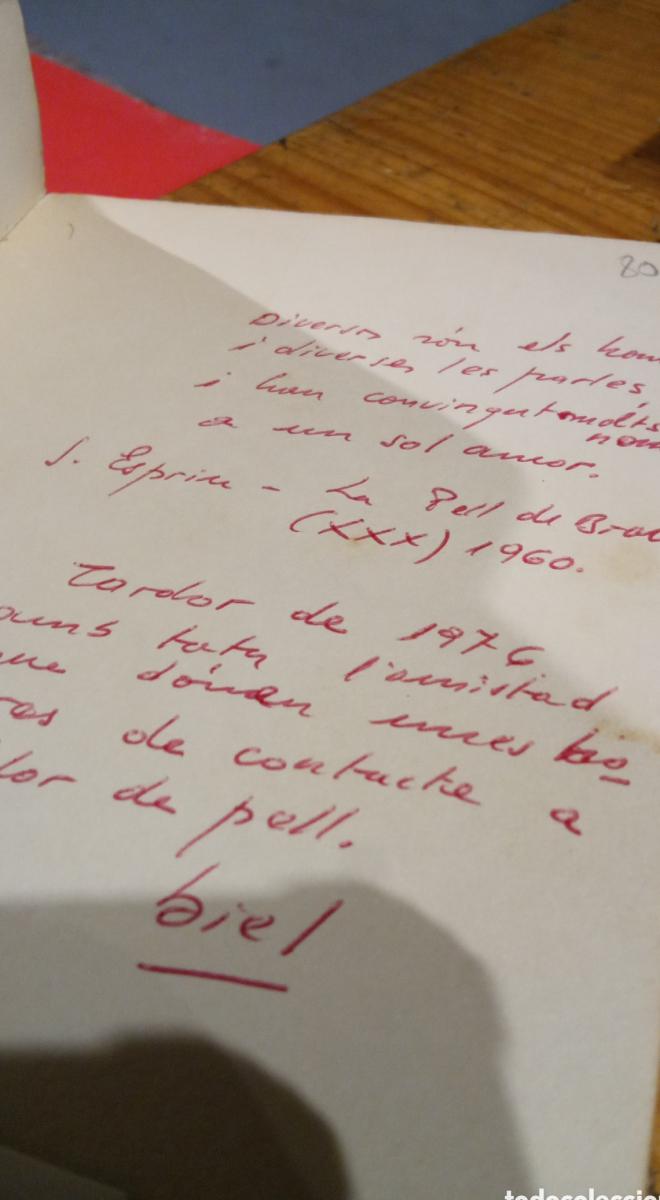 80
Diversos són els hom
i diverses les parles,
i han convingut molts
nom
a un sol amor.
S. Espriu - La Pell de Brau
(XXX) 1960.
Tardor de 1976
tota l'amistad
que dónan unes ho-
ras de contacte a
de pell.
biel
todocoleccion